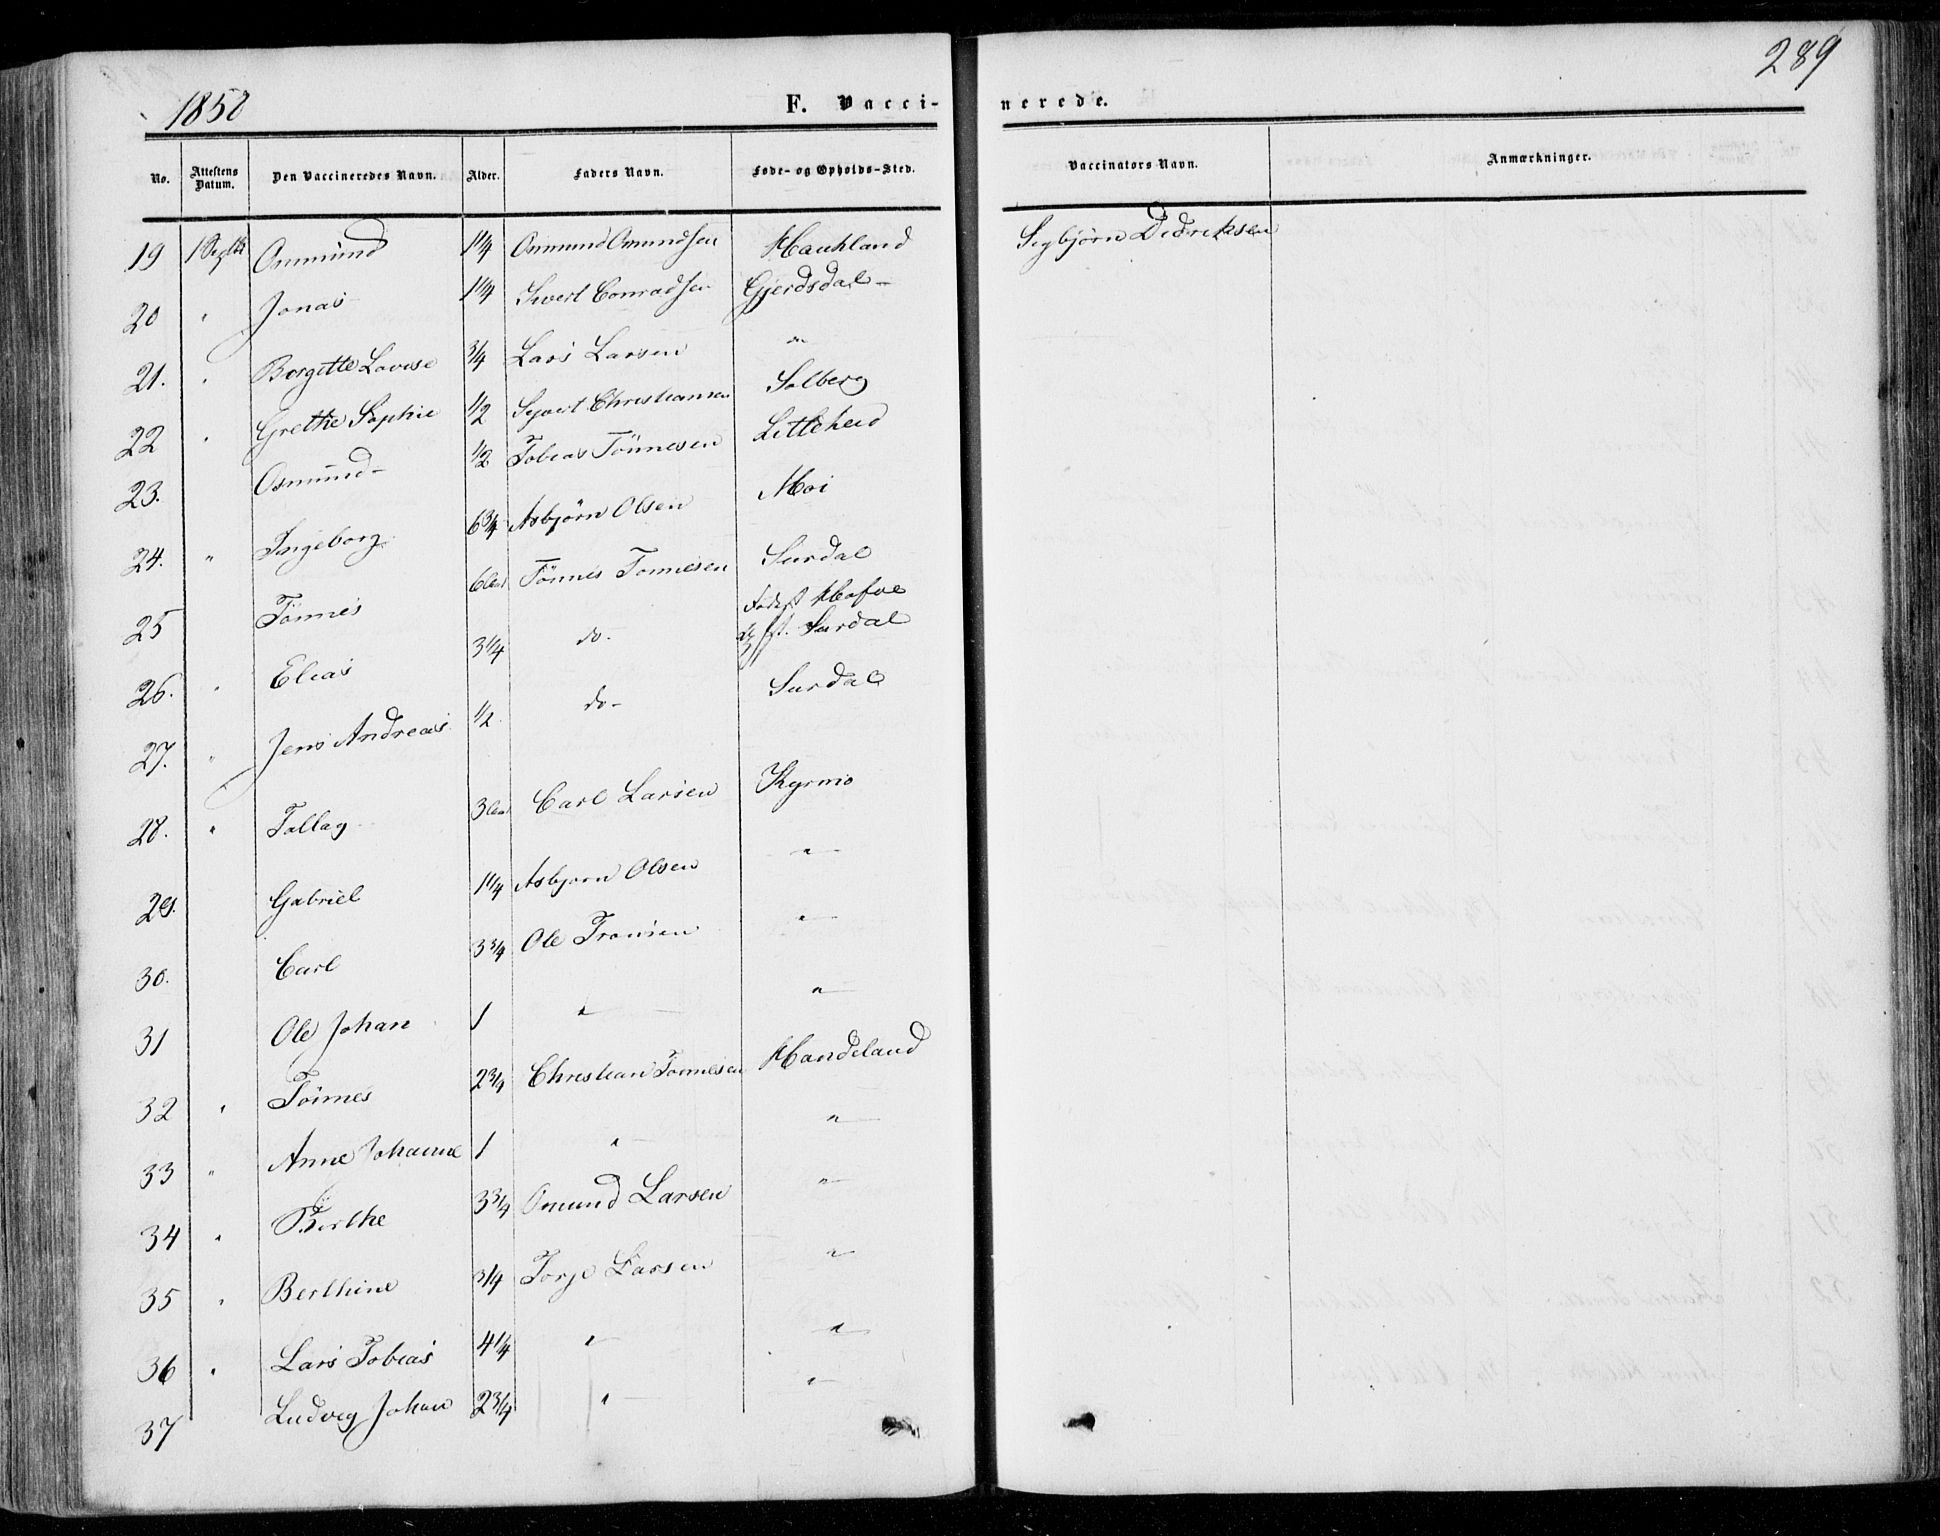 289
1850
F. Vacci-
nerede.
No.
Attestens Datum.
Den Vaccineredes Navn.
Alder.
Faders Navn.
Føde- og Opholds-Sted.
Vaccinators Navn.
Anmærkninger.
19 Ommund 1 1/4 Ommund Omundsen Haukland Segbjørn Dideriksen
20 " Jonas 1 1/4 Sivert Conradsen Gjerdsdal -
21. " Borgitte Lovise 3/4 Lars Larsen "
22 " Grethe Sophie 1/2 Syvert Christiansen Solberg
23. Osmund - 1/2 Tobias Tönnesen Littleheid
24. " Ingeborg 6 3/4 Asbjørn Olsen Moi
25 Tönnes Tönnes Tonnesen Surdal
26. " Elias 3 1/4 do. Fødest. st. Surdal
27. " Jens Andreas 1/2 do - Surdal
28. " Tallag Carl Larsen Kyrmo
29. Gabriel 1 1/4 Asbjorn Olsen "
30. Carl 3 3/4 Ole "
31 Ole Johan 1 " "
32 " Tönnes 2 3/4 Christian Tönnesen Handeland
33 " Anne Johanne 1 " "
34 " Berthe 3 3/4 Omund Larsen "
35 " Berthine 3/4 Torje Larsen "
36 " Lars Tobias 4 1/4 " "
37 Ludvig Johan 2 3/4 " "